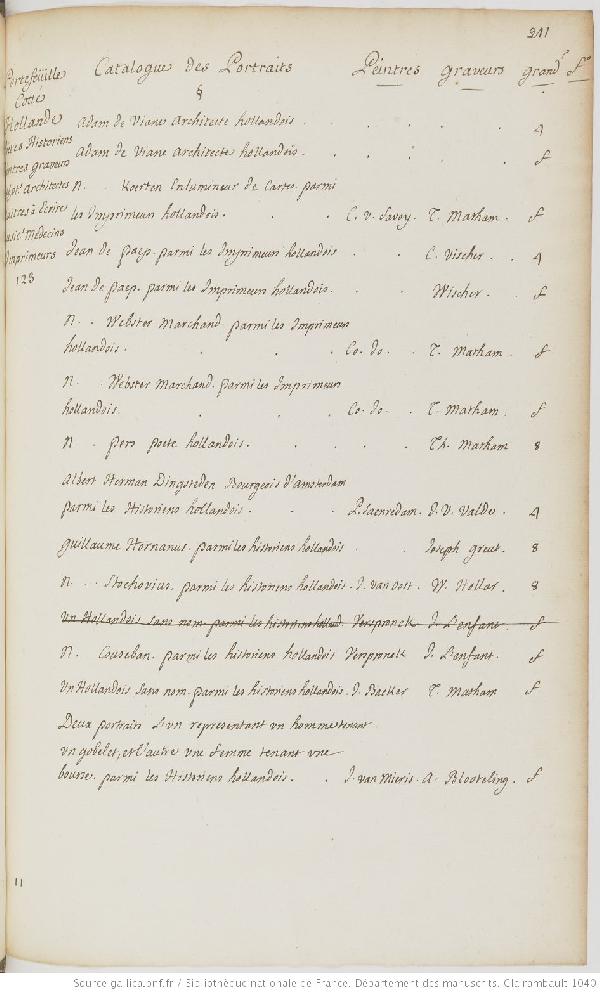 241
Catalogue des Portraits Peintres graveurs grand.r f.o
§
Portefeüille
Cotté
Hollande
Historiens
peintres graveurs
architectes
maitres à Ecrire
Medecins
Imprimeurs
123
Adam de Viane Architecte hollandois . . . . 4
Adam de Viane Architecte hollandois . . . . f
N. Koerten Enlumineur de Cartes parmi
les Imprimeurs hollandois . . . C. v. Savoy. T. Matham. f
Jean de paep. parmi les Imprimeurs hollandois . . C. Vischer . . 4
Jean de paep. parmi les Imprimeurs hollandois . . Wischer . f
N. . Webster Marchand parmi les Imprimeurs
hollandois . . . . Co. do. . T. Matham . f
N. . Webster Marchand. parmi les Imprimeurs
hollandois . . . . Co. do. . T. Matham . f
N . pers poete hollandois . . . . Th. Matham 8
Albert Herman Dingsteden Bourgeois d'amsterdam
parmi les Historiens hollandois . . . P. Saenredam. J. V. Valde . 4
guillaume Hornanus. parmi les historiens hollandois . . Joseph greut . 8
N. . . Stochovius. parmi les historiens hollandois . J. van Oost . W. Hollar . 8
Un Hollandois sans nom. parmi les historiens holland. Verspronck J. Lenfant . f
N. Couseban. parmi les historiens hollandois Verspronck J. Lenfant . f
Un Hollandois sans nom. parmi les historiens hollandois. J. Backer T. Matham f
Deux portraits L'un representant un homme tenant
un gobelet, et l'autre une femme tenant une
bourse. parmi les Historiens hollandois . . J. van Mieris . A. Blooteling . f
11
Source gallica.bnf.fr / Bibliothèque nationale de France. Département des manuscrits. Clairambault 1040